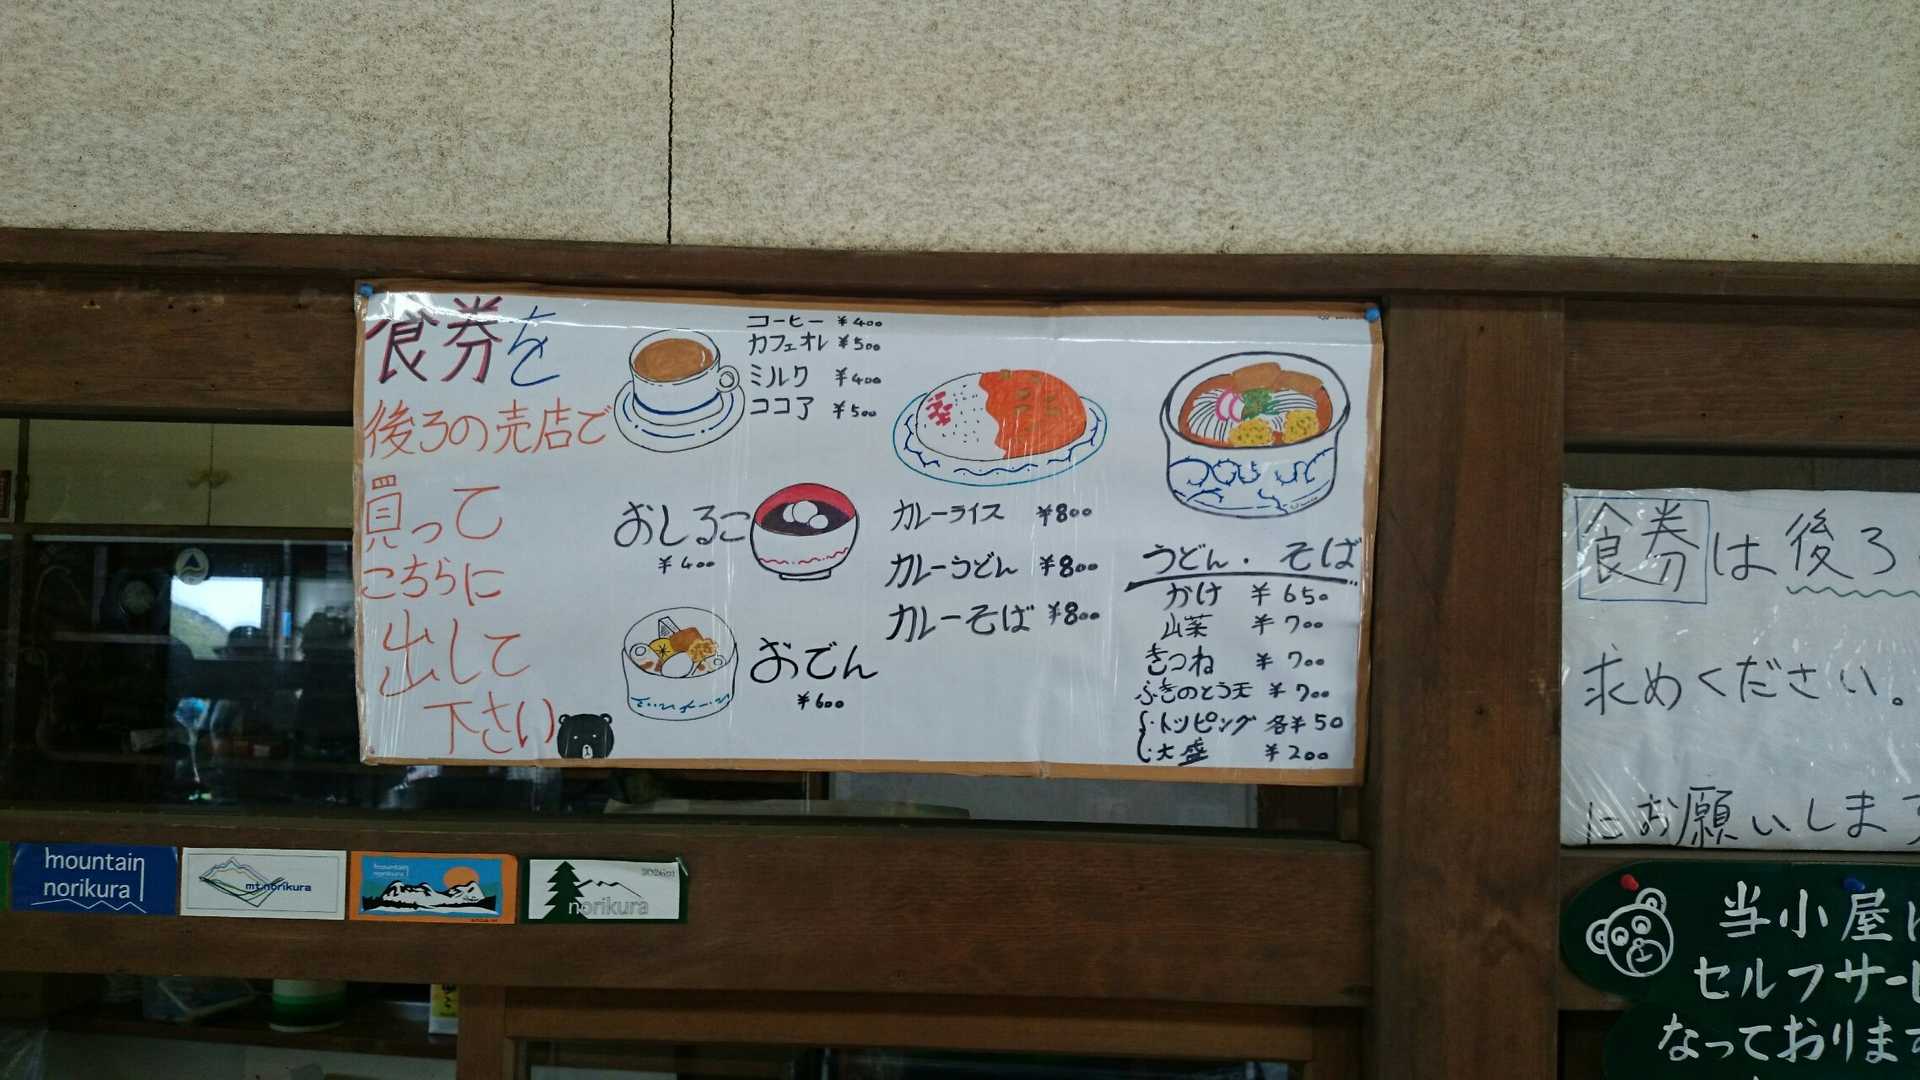 食券を
後ろの売店で
買って
こちらに
出して
下さい
コーヒー ¥400
カフェオレ ¥500
ミルク ¥400
ココア ¥500
おしるこ
¥400
おでん
¥600
カレーライス ¥800
カレーうどん ¥800
カレーそば ¥800
うどん・そば
かけ ¥650
山菜 ¥700
きつね ¥700
ふきのとう天 ¥700
・トッピング 各¥50
・大盛 ¥200
食券は後ろ
求めください。
にお願いします
当小屋は
セルフサービ
なっております
mountain
norikura
mt.norikura
mountain
norikura
norikura